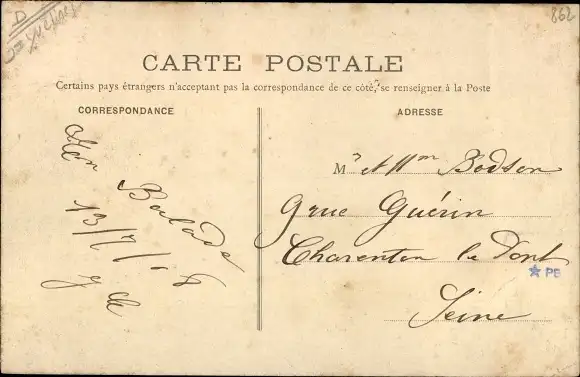 D
862
CARTE POSTALE
Certains pays étrangers n'acceptant pas la correspondance de ce côté, se renseigner à la Poste
CORRESPONDANCE
ADRESSE
En Balade
13/7/08
Mr et Mme Bodson
9 rue Guérin
Charenton le Pont
Seine
★ PB